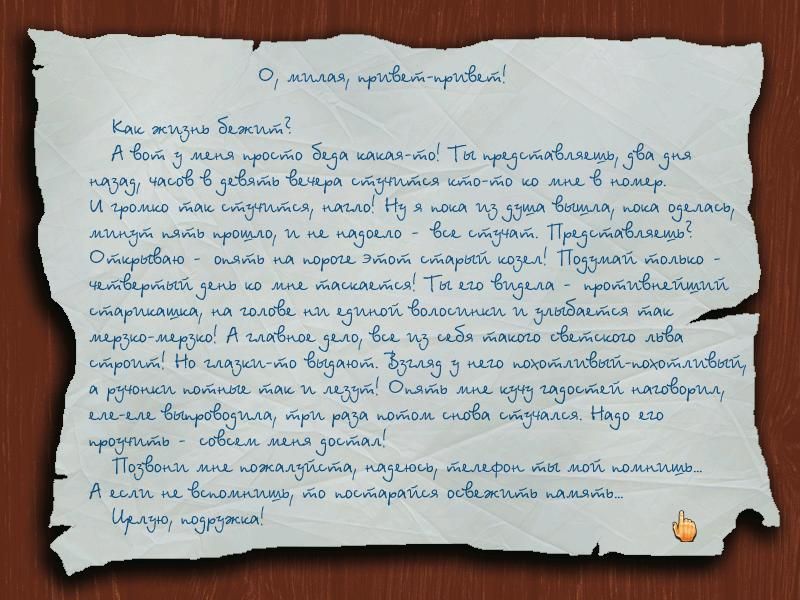 О, милая, привет-привет!
Как жизнь бежит?
А вот у меня просто беда какая-то! Ты представляешь, два дня
назад, часов в девять вечера стучится кто-то ко мне в номер.
И громко так стучится, нагло! Ну я пока из душа вышла, пока оделась,
минут пять прошло, и не надоело - все стучат. Представляешь?
Открываю - опять на пороге этот старый козел! Подумай только -
четвертый день ко мне таскается! Ты его видела - противнейший
старикашка, на голове ни единой волосинки и улыбается так
мерзко-мерзко! А главное дело, все из себя такого светского льва
строит! Но глазки-то выдают. Взгляд у него похотливый-похотливый,
а ручонки потные так и лезут! Опять мне кучу гадостей наговорил,
еле-еле выпроводила, три раза потом снова стучался. Надо его
проучить - совсем меня достал!
Позвони мне пожалуйста, надеюсь, телефон ты мой помнишь...
А если не вспомнишь, то постарайся освежить память...
Целую, подружка!